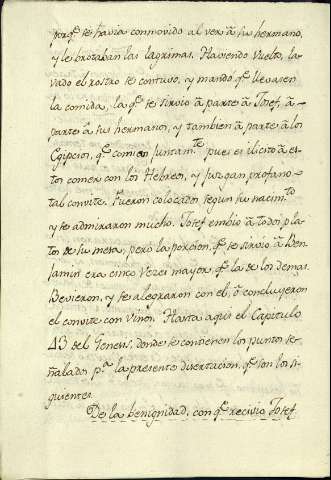 porq.e se havia conmovido al ver â su hermano,
y le brotaban las lagrimas. Haviendo vuelto, la-
vado el rostro se contuvo, y mandò q.e llevasen
la comida, la q.e se sirviò â parte â Josef, â-
parte â sus hermanos, y tambien â parte â los
Egipcios, q.e comieron juntam.te pues es ilicito â es-
tos comer con los Hebreos, y juzgan profano-
tal convite. Fueron colocados segun su nacim.to
y se admiraron mucho. Josef embiò â todos pla-
tos de su mesa, pero la porcion, q.e se sirviò â Ben-
jamin era cinco vezes mayor, q.e la de los demas.
Bevieron, y se alegraron con el, ô concluyeron
el convite con vinos. Hasta aqui el Capitulo
43 del Genesis donde se contienen los puntos se-
ñalados p.a la presente disertacion, q.e son los si-
guientes.
De la benignidad, con q.e reciviò Josef